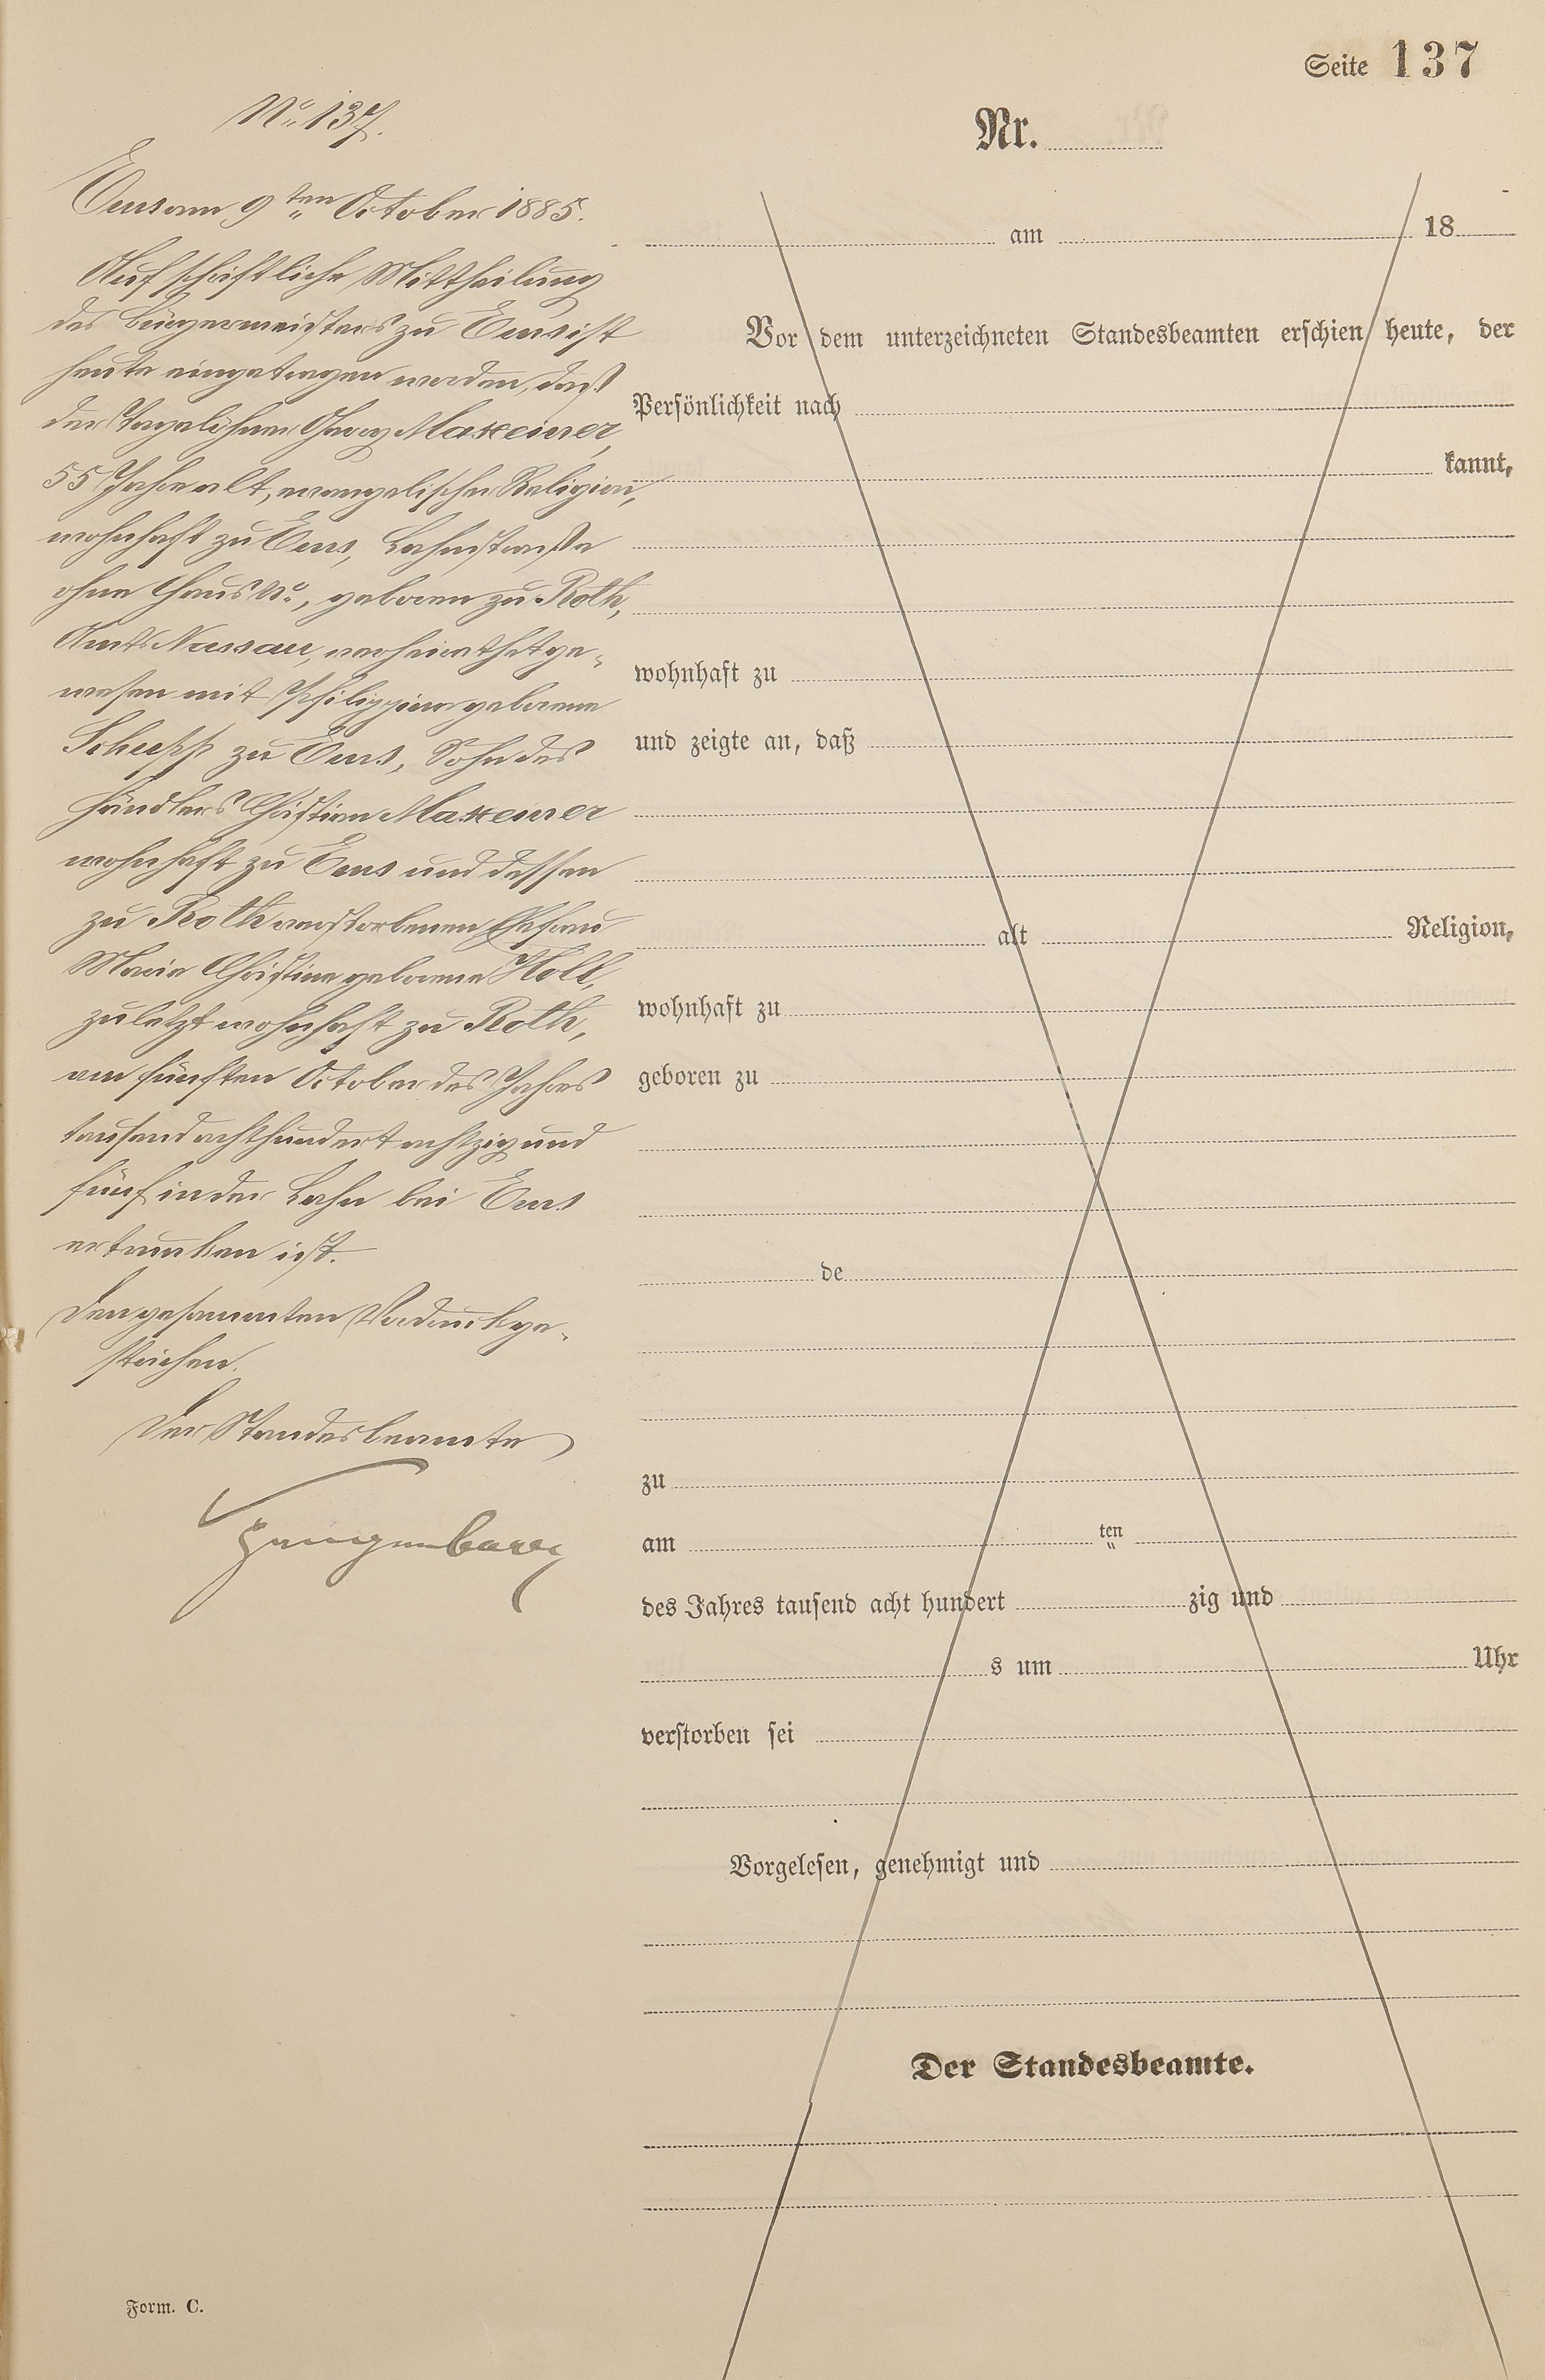 Seite 137
Nº 137.
Ems am 9ten October 1885.
Auf schriftliche Mittheilung
des Bürgermeisters zu Ems ist
heute eingetragen worden, daß
der Tagelöhner Georg Maxeiner,
55 Jahre alt, evangelischer Religion,
wohnhaft zu Ems, Lahnstraße
ohne Haus Nº., geboren zu Roth,
Amts Nassau, verheirathet ge-
wesen mit Philippine geborene
Schupp zu Ems, Sohn des
Händlers Christian Maxeiner
wohnhaft zu Ems und dessen
zu Roth verstorbenen Ehefrau
Marie Christine geborene Holl,
zuletzt wohnhaft zu Roth,
am fünften October des Jahres
tausend achthundert achtzig und
fünf in der Lahn bei Ems
ertrunken ist.
Den gesammten Vordruck ge-
strichen.
Der Standesbeamte
Form. C.
Nr.
am 18
Vor dem unterzeichneten Standesbeamten erschien heute, der
Persönlichkeit nach
kannt,
wohnhaft zu
und zeigte an, daß
alt Religion,
wohnhaft zu
geboren zu
de
zu
am ten
des Jahres tausend acht hundert zig und
s um Uhr
verstorben sei
Vorgelesen, genehmigt und
Der Standesbeamte.